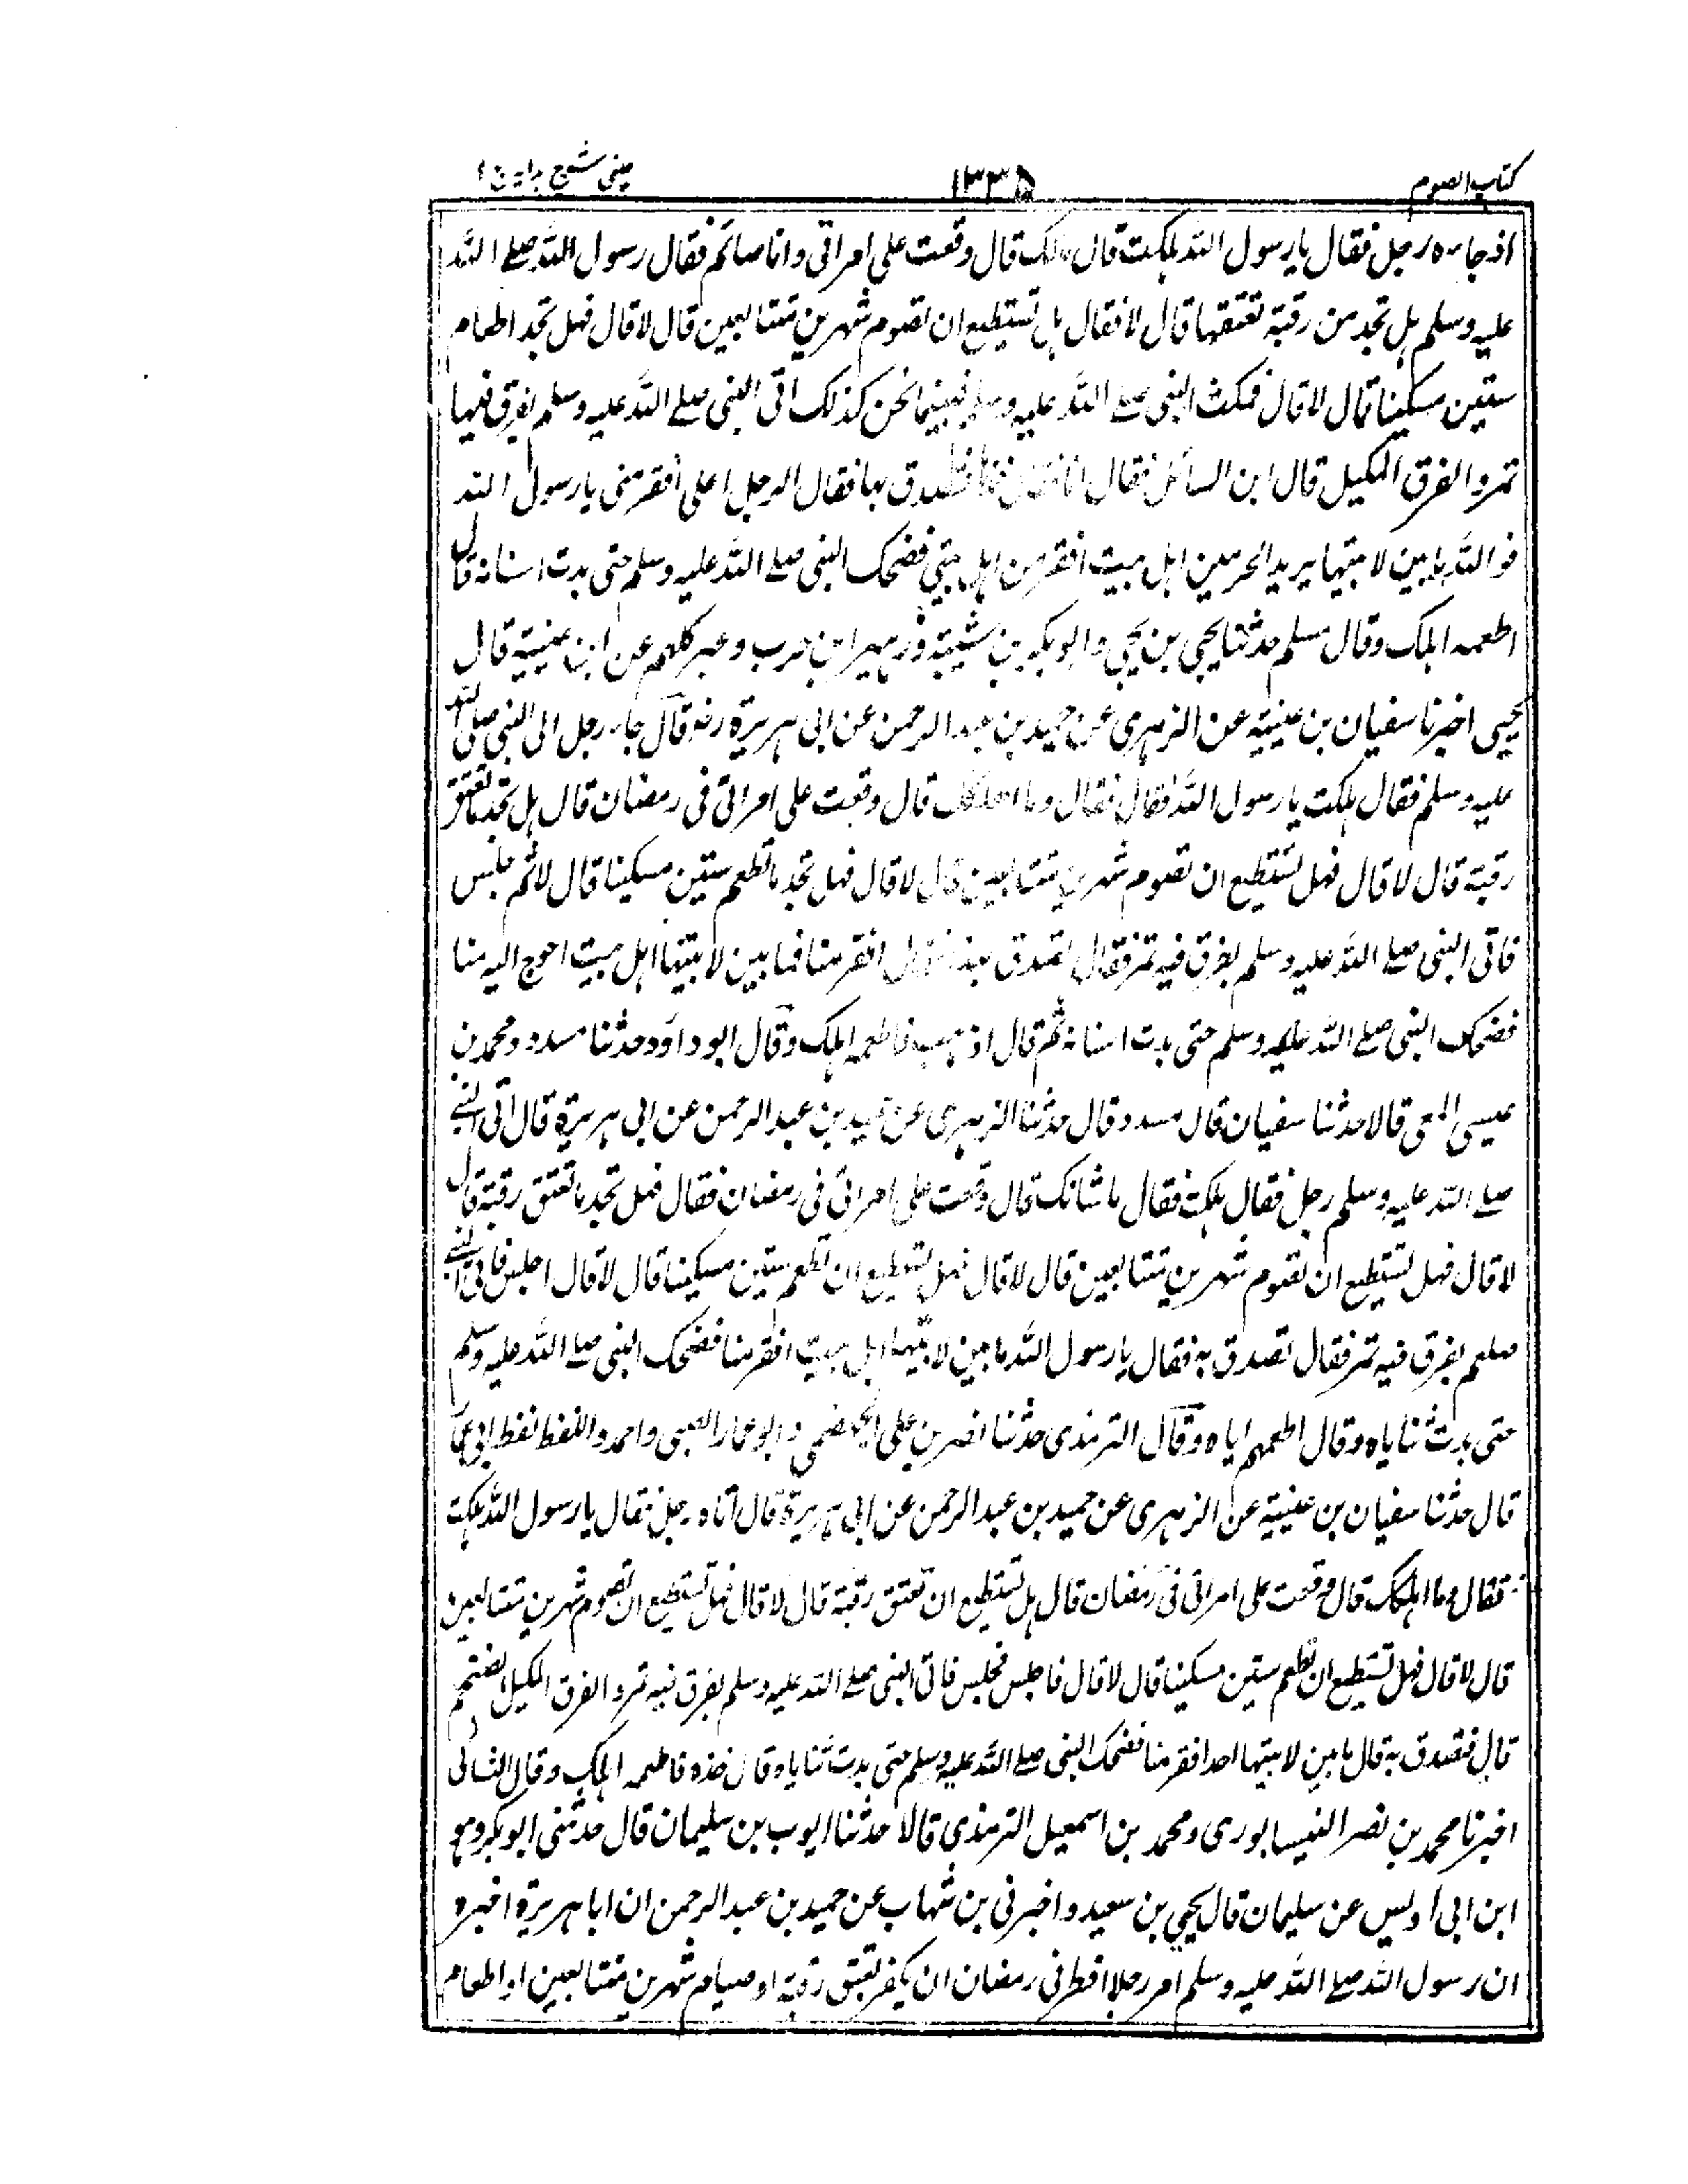 كتاب الصوم
١٣٣٥
عينى شرح هداية ج ١
اذ جاءه رجل فقال يا رسول الله هلكت قال مالك قال وقعت على امراتى وانا صائم فقال رسول الله صلے الله
عليه وسلم هل تجد من رقبة تعتقها قال لا فقال هل تستطيع ان تصوم شهرين متتابعين قال لا قال فهل تجد اطعام
ستين مسكينا قال لا قال فمكث النبى صلے الله عليه وسلم فبينما نحن كذلك اتى النبى صلے الله عليه وسلم بفرق فيها
تمر والفرق المكيل قال اين السائل فقال انا فقال خذها فتصدق بها فقال الرجل اعلى افقر منى يا رسول الله
فوالله ما بين لابتيها يريد الحرمين اهل بيت افقر من اهل بيتى فضحك النبى صلے الله عليه وسلم حتى بدت اسنانه قال
اطعمه اهلك وقال مسلم حدثنا يحيى بن يحيى وابو بكر بن شيبة وزهير ابن حرب وعبر كلهم عن ابن عيينة قال
يحيى اخبرنا سفيان بن عيينة عن الزهرى عن حميد بن عبد الرحمن عن ابى هريرة رضه قال جاء رجل الى النبى صلى الله
عليه وسلم فقال هلكت يا رسول الله فقال فقال وما اهلكك قال وقعت على امراتى فى رمضان قال هل تجد ما تعتق
رقبة قال لا قال فهل تستطيع ان تصوم شهرين متتابعين قال لا قال فهل تجد ما تطعم ستين مسكينا قال لا ثم جلس
فاتى النبى صلے الله عليه وسلم بفرق فيه تمر فقال تصدق بهذا فقال افقر منا فما بين لابتيها اهل بيت احوج اليه منا
فضحك النبى صلے الله عليه وسلم حتى بدت اسنانه ثم قال اذهب فاطعمه اهلك وقال ابو داؤد حدثنا مسدد ومحمد بن
عيسى المعى قالا حدثنا سفيان قال مسدد قال حدثنا الزهرى عن حميد بن عبد الرحمن عن ابى هريرة قال اتى النبے
صلے الله عليه وسلم رجل فقال هلكت فقال ما شانك قال وقعت على امراتى فى رمضان فقال فهل تجد ما تعتق رقبة قال
لا قال فهل تستطيع ان تصوم شهرين متتابعين قال لا قال فهل تستطيع ان تطعم ستين مسكينا قال لا قال اجلس فاتى النبے
صلعم بفرق فيه تمر فقال تصدق به فقال يا رسول الله ما بين لابتيها اهل بيت افقر منا فضحك النبى صلے الله عليه وسلم
حتى بدت ثناياه وقال اطعمهم اياه وقال الترمذى حدثنا نصر بن على الجهضمى وابو عمار العبى واحمد واللفظ لفظ ابى عمار
قال حدثنا سفيان بن عيينة عن الزهرى عن حميد بن عبد الرحمن عن ابى هريرة قال اتاه رجل فقال يا رسول الله هلكت
فقال وما اهلكك قال وقعت على امراتى فى رمضان قال هل تستطيع ان تعتق رقبة قال لا قال فهل تستطيع ان تصوم شهرين متتابعين
قال لا قال فهل تستطيع ان تطعم ستين مسكينا قال لا قال فاجلس فجلس فاتى النبى صلے الله عليه وسلم بفرق فيه تمر والفرق المكيل الضخم
قال فتصدق به قال ما بين لابتيها احد افقر منا فضحك النبى صلے الله عليه وسلم حتى بدت ثناياه وقال خذه فاطعمه اهلك وقال النسائى
اخبرنا محمد بن نصر النيسابورى ومحمد بن اسمعيل الترمذى قالا حدثنا ايوب بن سليمان قال حدثنى ابو بكر وهو
ابن ابى اويس عن سليمان قال يحيى بن سعيد واخبرنى بن شهاب عن حميد بن عبد الرحمن ان ابا هريرة اخبره
ان رسول الله صلے الله عليه وسلم امر رجلا افطر فى رمضان ان يكفر بعتق رقبة او صيام شهرين متتابعين او اطعام